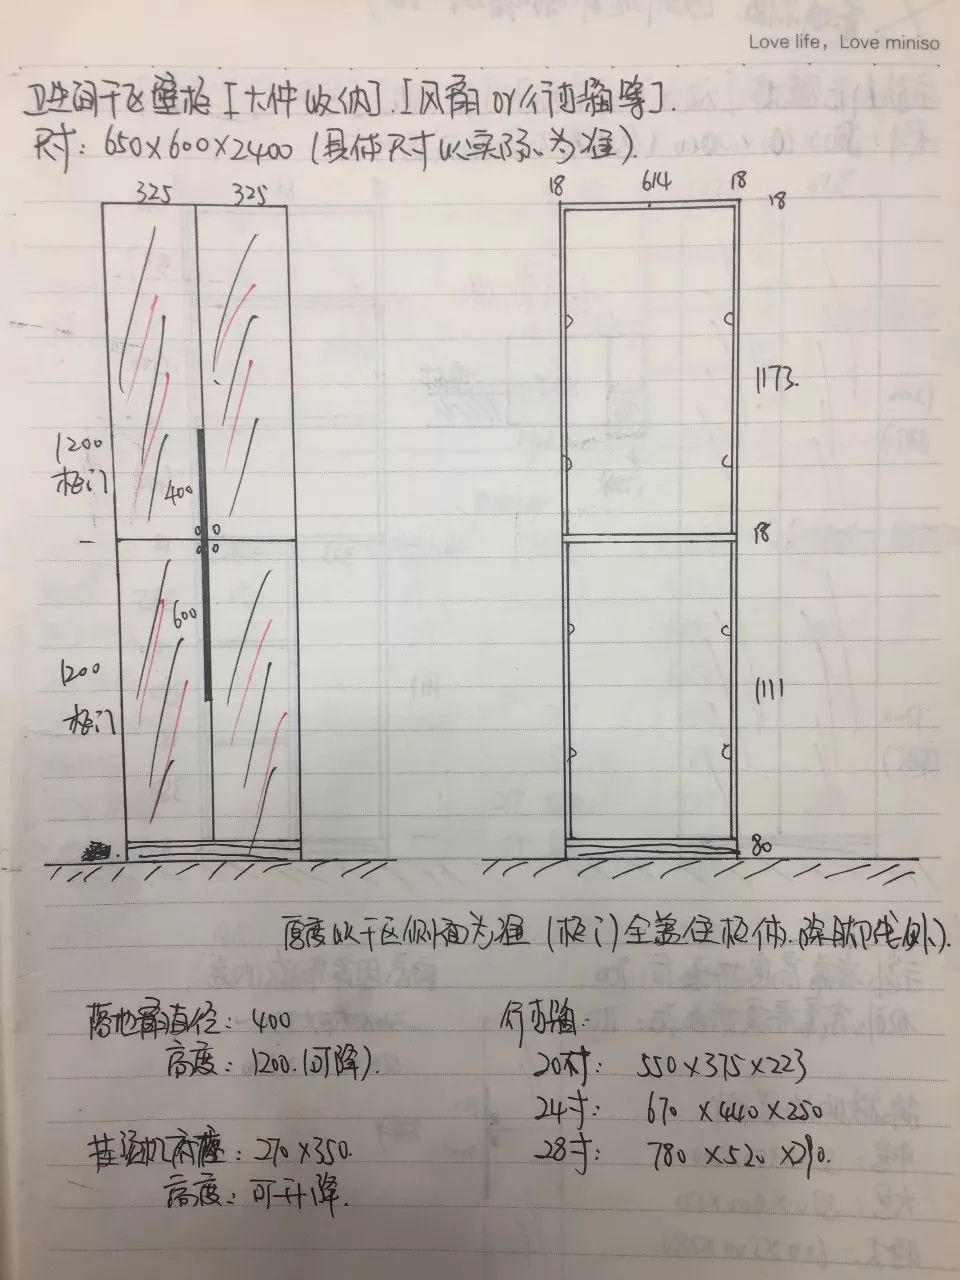 Love life, Love miniso
卫生间干区壁柜[大件收纳].[风扇or行李箱等].
尺寸: 650×600×2400 (具体尺寸以实际为准).
325 325
18 614 18
18
1173.
1200
柜门
400
18
600
1200
柜门
1111
80
厚度以干区侧面为准 (柜门全盖住柜体.除脚线外).
落地扇直径: 400
高度: 1200.(可降).
挂烫机底座: 270×350.
高度: 可升降.
行李箱:
20寸: 550×375×223
24寸: 670×440×250
28寸: 780×520×290.